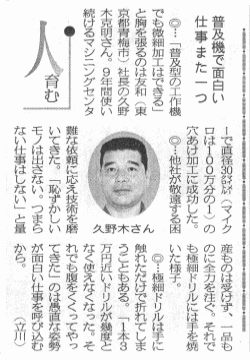 普及機で面白い
仕事また一つ
人
育む
◎…「普及型の工作機
でも微細加工はできる」
と胸を張るのは友和（東
京都青梅市）社長の久野
木克明さん。9年間使い
続けるマシニングセンタ
ーで直径30マイクロメートル（マイク
ロは100万分の1）の
穴あけ加工に成功した。
◎…他社が敬遠する困
難な依頼に応え技術を磨
いてきた。「恥ずかしい
モノは出さない。つまら
ない仕事はしない」と量
久野木さん
産ものは受けず、一品も
のに全力を注ぐ。それで
も極細ドリルには手を焼
いた様子。
◎…極細ドリルは手に
触れただけで折れてしま
うこともある。「1本3
万円近いドリルが幾度と
なく使えなくなった。そ
れでも腹をくくってやっ
てきた」のは愚直な姿勢
が面白い仕事を呼び込む
から。　（立川）